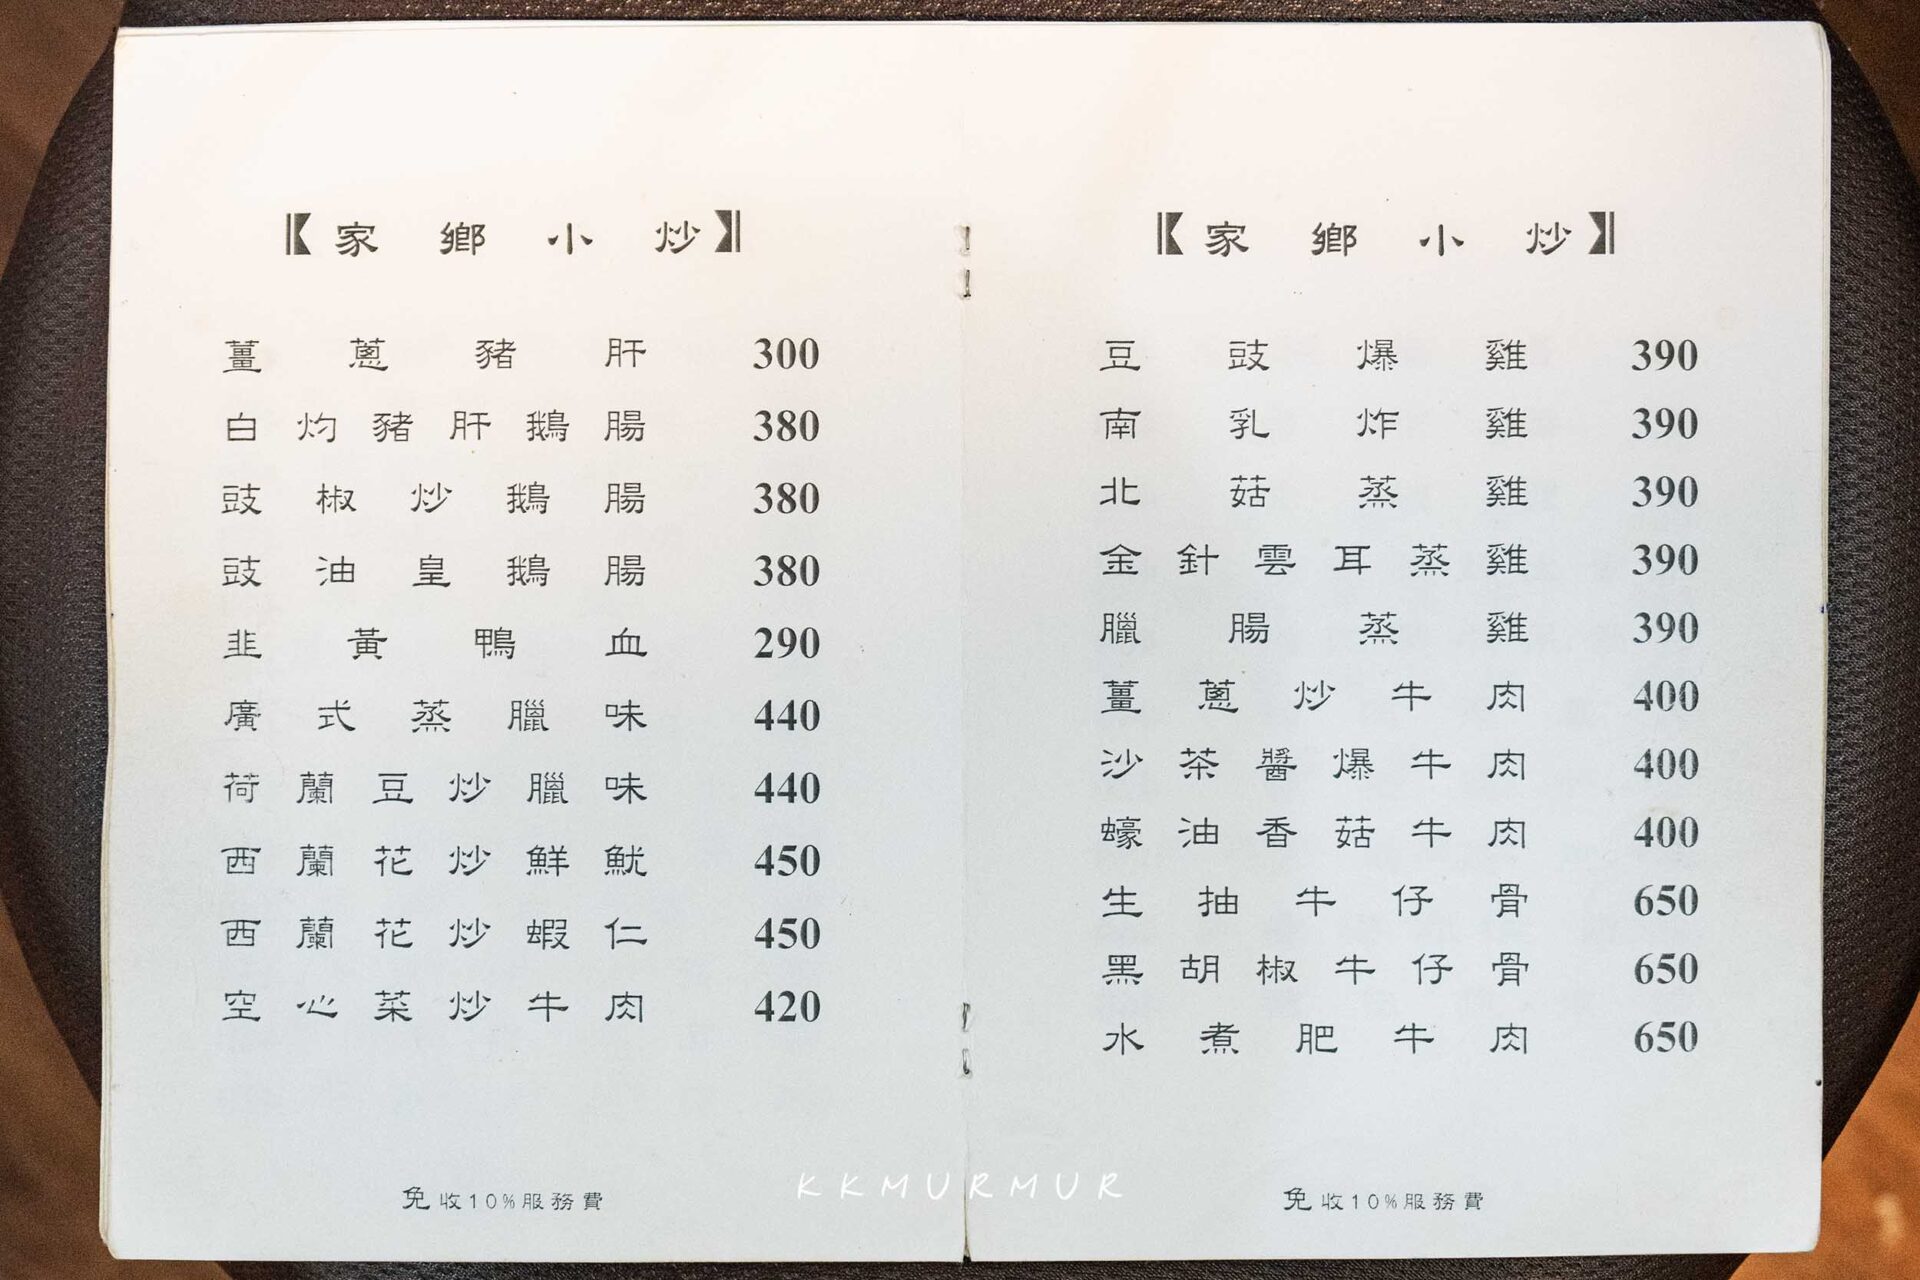 【家鄉小炒】
薑蔥豬肝 300
白灼豬肝鵝腸 380
豉椒炒鵝腸 380
豉油皇鵝腸 380
韭黃鴨血 290
廣式蒸臘味 440
荷蘭豆炒臘味 440
西蘭花炒鮮魷 450
西蘭花炒蝦仁 450
空心菜炒牛肉 420
免收10%服務費
【家鄉小炒】
豆豉爆雞 390
南乳炸雞 390
北菇蒸雞 390
金針雲耳蒸雞 390
臘腸蒸雞 390
薑蔥炒牛肉 400
沙茶醬爆牛肉 400
蠔油香菇牛肉 400
生抽牛仔骨 650
黑胡椒牛仔骨 650
水煮肥牛肉 650
免收10%服務費
KKMURMUR